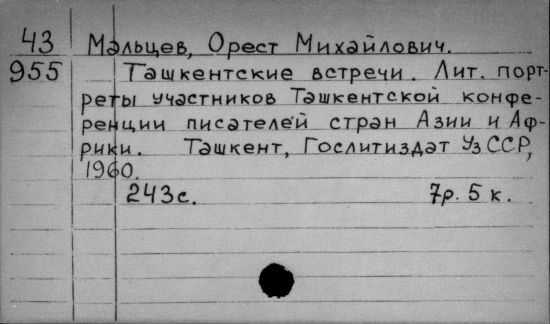 43 Мальцев, Орест Михайлович.
955 Ташкентские встречи. Лит. порт-
реты участников Ташкентской конфе-
ренции писателей стран Азии и Аф-
рики. Ташкент, Гослитиздат УзССР,
1960.
243с. 7р. 5к.